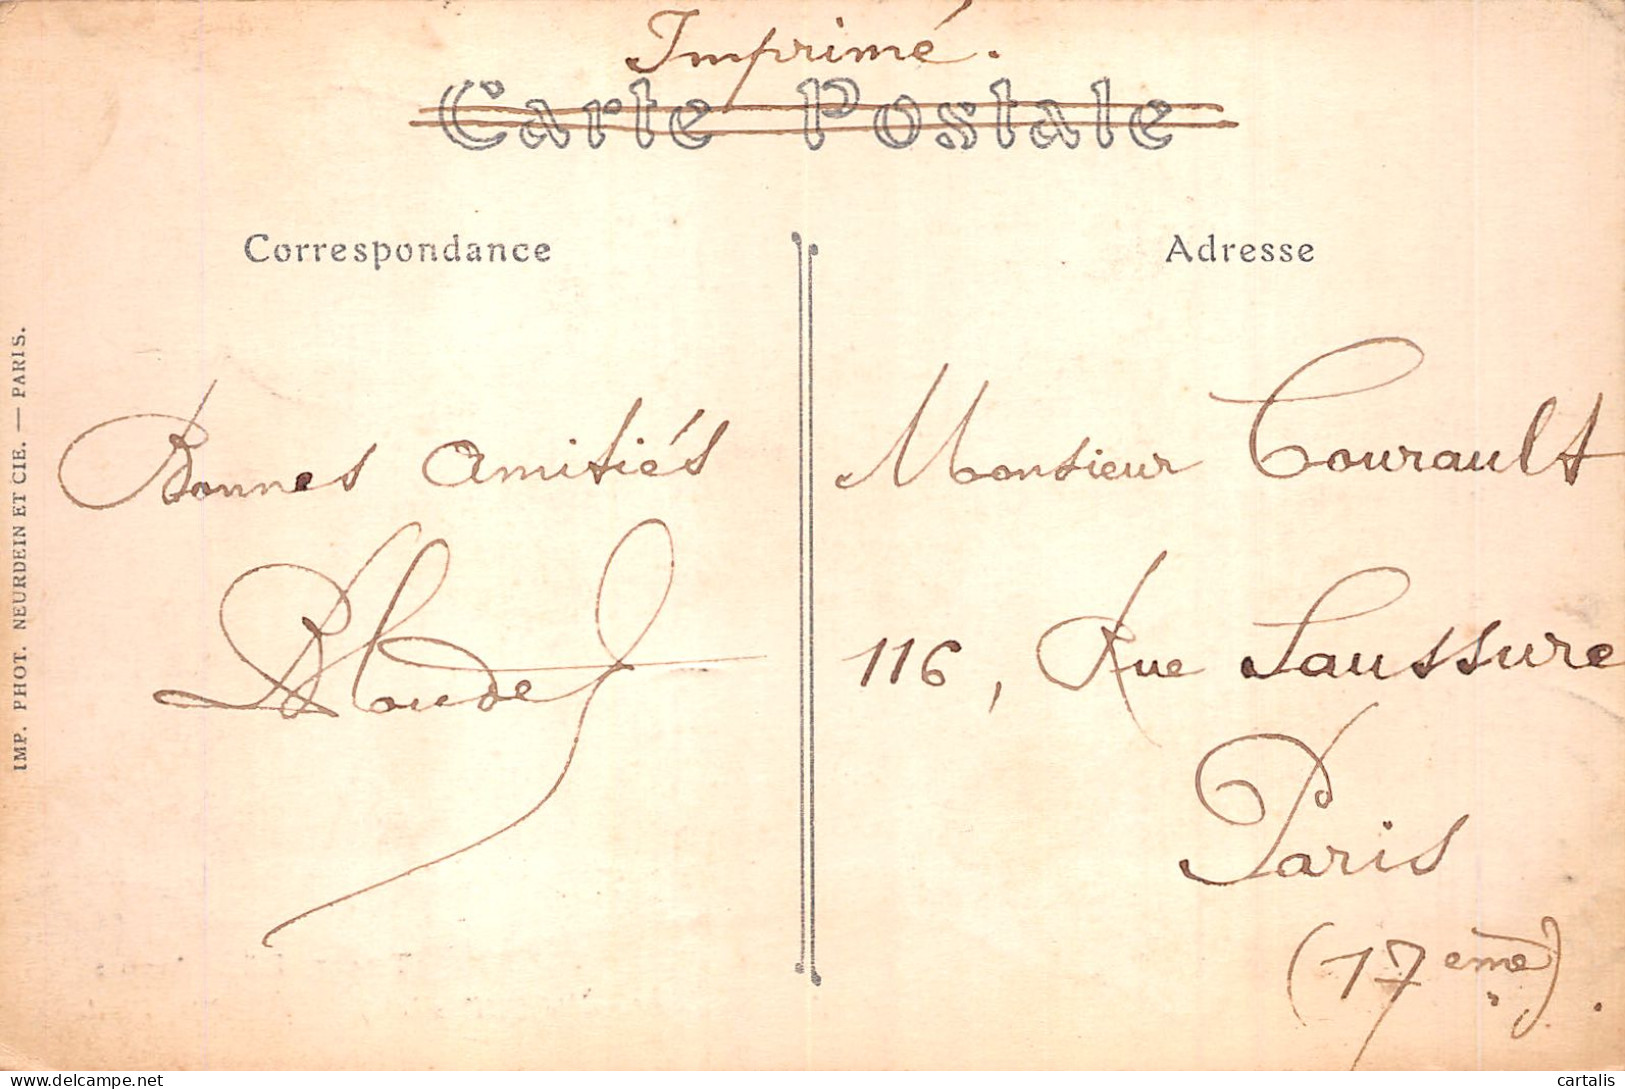 Imprimé.
Carte Postale
Correspondance
Adresse
IMP. PHOT. NEURDEIN ET CIE. — PARIS.
Bonnes amitiés
Monsieur Courault
116, Rue Saussure
Paris
(17eme).
delcampe.net
cartalis